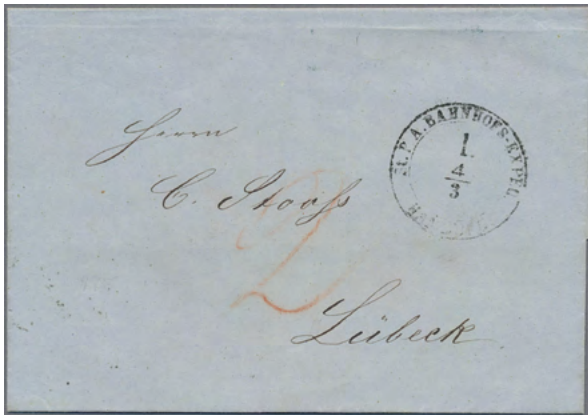 Herrn
C. Stooss
Lübeck
2
ST. P. A. BAHNHOFS-EXPED.
1.
4
3